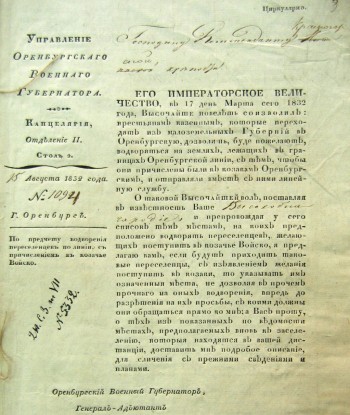 Циркулярно.
УПРАВЛЕНІЕ
ОРЕНБУРГСКАГО
ВОЕННАГО
ГУБЕРНАТОРА.
КАНЦЕЛЯРІЯ,
Отдѣленіе II.
Столъ 2.
15 Августа 1832 года.
№ 10924
Г. Оренбургъ.
По предмету водворенія
переселенцевъ по линіи, съ
причисленіемъ въ козачье
Войско.
Господину
крѣпости
ЕГО ИМПЕРАТОРСКОЕ ВЕЛИ-
ЧЕСТВО, въ 17 день Марта сего 1832
года, Высочайше повелѣть соизволилъ:
крестьянамъ казеннымъ, которые перехо-
дятъ изъ малоземельныхъ Губерній въ
Оренбургскую, дозволить, буде пожелаютъ,
водворяться на земляхъ, лежащихъ въ гра-
ницахъ Оренбургской линіи, съ тѣмъ, чтобы
они причислены были въ козаки Оренбург-
скіе, и отправляли вмѣстѣ съ ними линей-
ную службу.
О таковой Высочайшей волѣ, поставляя
въ извѣстность Ваше Высокобла
городіе и препровождая у сего
списокъ тѣмъ мѣстамъ, на коихъ пред-
положено водворять переселенцевъ, желаю-
щихъ поступить въ козачье Войско, я предла-
гаю вамъ, если будутъ приходить тако-
вые переселенцы, съ изъявленіемъ желанія
поступить въ козаки, то указывать имъ
назначенныя мѣста, не дозволяя въ прочемъ
прочнаго на оныхъ водворенія, впредь до
разрѣшенія на ихъ просьбы, съ коими должны
они обращаться прямо ко мнѣ; а Васъ прошу,
о тѣхъ изъ показанныхъ по вѣдомости
мѣстахъ, предполагаемыхъ вновь къ засе-
ленію, которыя находятся въ вашей ди-
станціи, доставить мнѣ подробное описаніе, для
сличенія съ прежними свѣденіями и
планами.
Оренбургскій Военный Губернаторъ,
Генералъ-Адъютантъ
№ 5538.